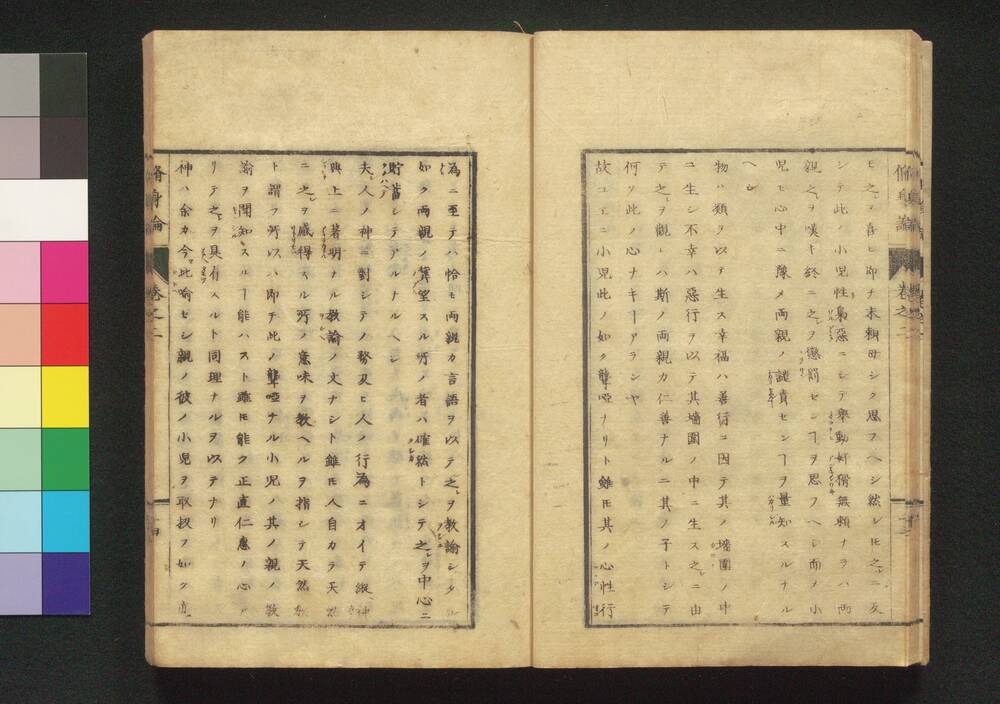 脩身論
巻之二
モ之ヲ喜ヒ即チ末頼母シク思フヘシ然レ𪜈之ニ反
シテ此ノ小児性梟惡ニシテ舉動奸猾無頼ナラハ両
親之ヲ嘆キ終ニ之ヲ懲罰センヿヲ思フヘシ而メ小
児モ心中ニ豫メ両親ノ譴責センヿヲ量知スルナル
ヘシ
物ハ類ヲ以テ生ス幸福ハ善行ニ因テ其ノ墻圍ノ中
ニ生シ不幸ハ惡行ヲ以テ其墻圍ノ中ニ生ス之ニ由
テ之ヲ觀レハ斯ノ両親カ仁善ナルニ其ノ子トシテ
何ソ此ノ心ナキヿアランヤ
故ユエニ小児此ノ如ク聾啞ナリト雖𪜈其ノ心性行
為ニ至テハ恰モ両親カ言語ヲ以テ之ヲ教諭シタル
如ク両親ノ冀望スル所ノ者ハ確然トシテ之ヲ中心ニ
貯蓄シテアルナルヘシ
夫人ノ神ニ對シテノ務及ヒ人ノ行為ニオイテ縦神
典上ニ著明ナル教諭ノ文ナシト雖𪜈人自カラ天然
ニ之ヲ感得スル所ノ意味ヲ教ヘルヲ指シテ天然教
ト謂フ所以ハ即チ此ノ聾啞ナル小児ノ其ノ親ノ教
諭ヲ聞知スルヿ能ハスト雖𪜈能ク正直仁惠ノ心ア
リテ之ヲ具有スルト同理ナルヲ以テナリ
神ハ余カ今此喩セシ親ノ彼ノ小児ヲ取扱フ如ク直
脩身論
巻之二
十四